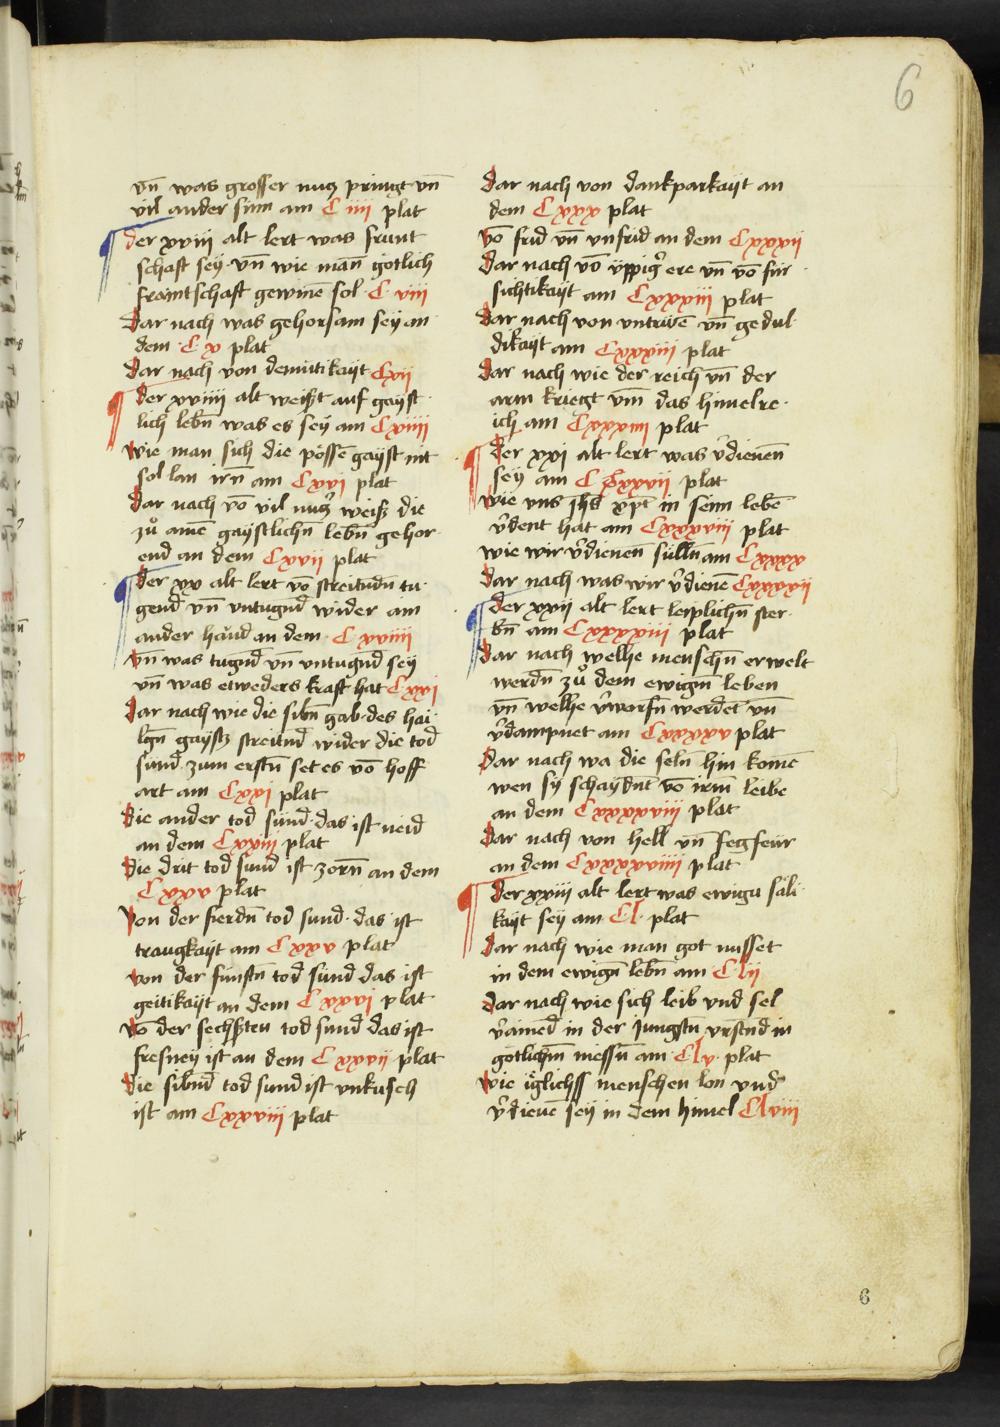 6
vn̄ was grosser nucz pringt vn̄
vil ander sinn am C iiii plat
der xviii alt lert was frunt
schaft sey · vn̄ wie man̄ gotlich
fraintschaft gewinē sol · C viii
Dar nach was gehorsam sey an
dem · C x plat
dar nach von demutikayt Cxii
der xviiii alt weißt auf gayst
lich lebn̄ was es sey am Cxiiii
wie man sich die pössē gayst nit
sol lan irn̄ am Cxvi plat
dar nach vō vil nucz weiß die
zů amē gaystlichn̄ lebn̄ gehor
end an dem Cxvii plat
der xx alt lert vo streitūdn tu·
gend̄ vn̄ vntugnd̄ wider am
ander hand an dem · C xviiii
Vn̄ was tugnd̄ vn̄ vntugnd̄ sey
vn̄ was etweders kraft hat Cxxi
dar nach wie die sibn̄ gab · des hai
lgn̄ gaystz streitnd̄ wider die tod
sund · zum erstn̄ set es vō hoff
art am Cxxi plat
die ander tod sünd · das ist neid
an dem Cxxiii plat
die drit tod sund ist zorn̄ an dem
Cxxv plat
Von der fierdn̄ tod sund · das ist
traugkayt am Cxxv plat
von der funftn̄ tod sünd das ist
geitikayt an dem Cxxvi plat
vō der sechßten tod sund das ist
fresney ist an dem Cxxvii plat
die sibnd̄ tod sund ist vnkusch
ist am Cxxviii plat
dar nach von dankparkayt an
dem Cxxx plat
vō frid vn̄ vnfrid an dem Cxxxii
dar nach vō üppiger ere vn̄ vō für
sichtikayt am Cxxxiii plat
dar nach von vntriwē vn̄ gedul·
dikayt am Cxxxiii plat
dar nach wie der reich vn̄ der
arm kriegt vm̄ das himelre·
ich am Cxxxiiii plat
der xxi alt lert was v̄dienen̄
sey am C Cxxxvii plat
wie vns ihs xpt in seim lebē
v̄dent hat am Cxxxviii plat
wie wir v̄dienen̄ sülln̄ am Cxxxx
dar nach was wir v̄dienē Cxxxxii
der xxii alt lert leiplichn̄ ster·
bn̄ am Cxxxxiii plat
dar nach welhe menschn̄ erwelt
werdn̄ zů dem ewign̄ leben
vn̄ welhe v̄worfn̄ werdēt vn̄
v̄dampnet am Cxxxxv plat
dar nach wa die seln̄ hin komē
wen sy schaydnt vō irm̄ leibe
an dem Cxxxxviii plat
dar nach von hell vn̄ fegfeür
an dem Cxxxxviiii plat
der xxiii alt lert was ewigu säli·
kayt sey am · Cl · plat
dar nach wie man got nusset
in dem ewign̄ lebn̄ am Clii
dar nach wie sich leib vnd sel
v̄ained in der jungstn vrstnd in
gotlichm̄ niessn̄ am · Clv · plat
wie iglichss menschen lon vnd
v̄dienē sey in dem himel Clviii
6